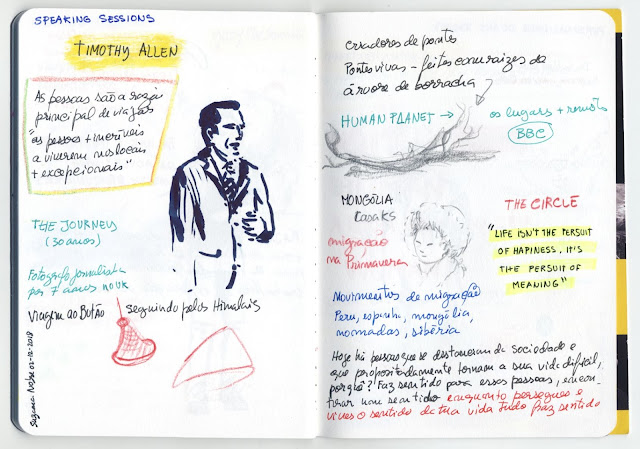 SPEAKING SESSIONS
TIMOTHY ALLEN
As pessoas são a razão
principal de viajar
"as pessoas + incríveis
a viverem nos locais
+ excepcionais"
THE JOURNEY
(30 anos)
Fotógrafo jornalista
por 7 anos no UK
Viagem ao Butão seguindo pelos Himalais
Suzana Nobre 02-12-2018
criadores de pontes
Pontes vivas - feitas com raizes de
árvore de borracha
HUMAN PLANET → os lugares + remotos
BBC
MONGÓLIA
Casaks
migração
na Primavera
THE CIRCLE
"LIFE ISN'T THE PERSUIT
OF HAPINESS, IT'S
THE PERSUIT OF
MEANING"
Movimentos de migração
Peru, espanha, mongólia,
nomadas, sibéria
Hoje há pessoas que se destacam da sociedade e
que propositadamente tornam a sua vida difícil,
porquê? Faz sentido para essas pessoas, encon-
trar um sentido enquanto persegues e
vives o sentido da tua vida tudo faz sentido